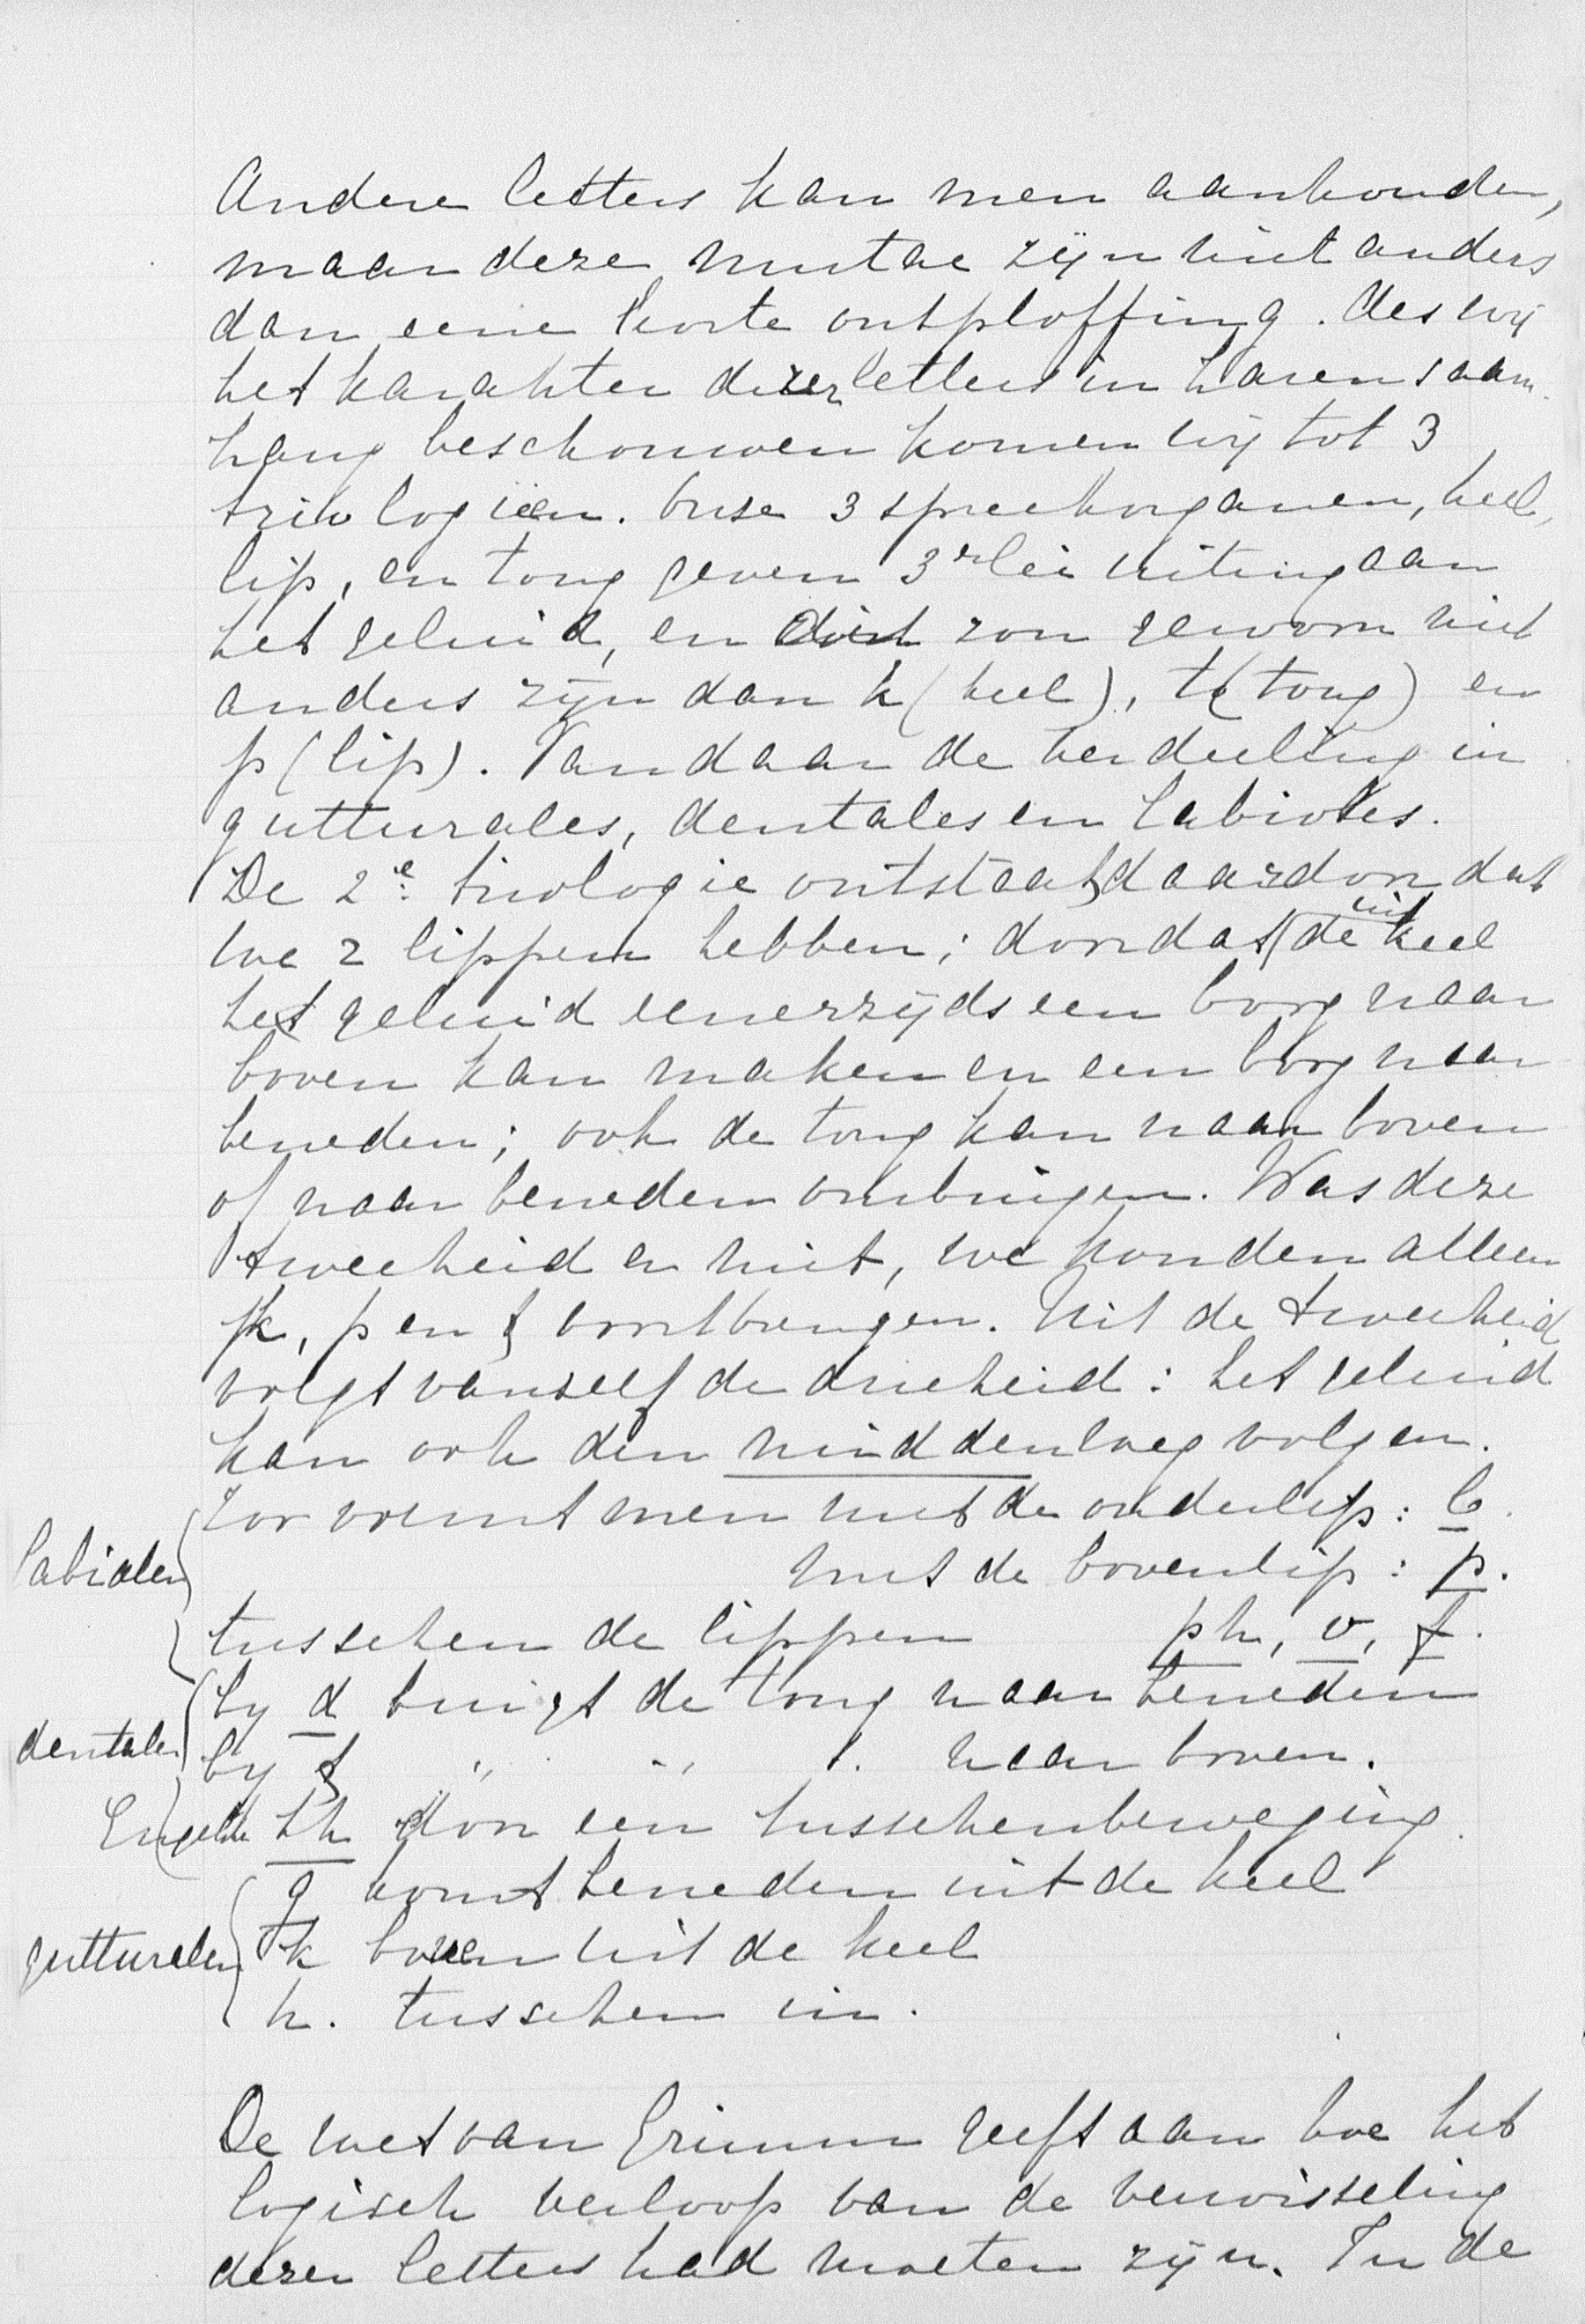 Andere letters kan men aanhouden,
maar deze mutae zijn niet anders
dan eene korte ontploffing. Als wij
het karakter dezer letters in haren saam
hang beschouwen komen wij tot 3
triologieën. Onze 3 spreekorganen, keel,
lip, en tong geven 3erlei uiting aan
het geluid, en dat zou gewoon niet
anders zijn dan k (keel), t (tong) en
p (lip). Vandaar de verdeeling in
gutturales, dentales en labiales.
De 2e triologie ontstaat daardoor dat
we 2 lippen hebben; doordat uit de keel
het geluid eenerzijds een boog naar
boven kan maken en een boog naar
beneden; ook de tong kan naar boven
of naar beneden ombuigen. Was deze
tweeheid er niet, we konden alleen
k, p en t voortbrengen. Uit de tweeheid
volgt vanzelf de drieheid: het geluid
kan ook den middenweg volgen.
Zoo vormt men met de onderlip: b.
labialen met de bovenlip: p.
tusschen de lippen ph, v, f.
by d buigt de tong naar beneden
dentalen by t " " " naar boven.
Engelsche th door een tusschenbeweging.
g komt beneden uit de keel
gutturalen k boven uit de keel
h. tusschen in.
De wet van Grimm geeft aan hoe het
logisch verloop van de verwisseling
dezer letters had moeten zijn. In de